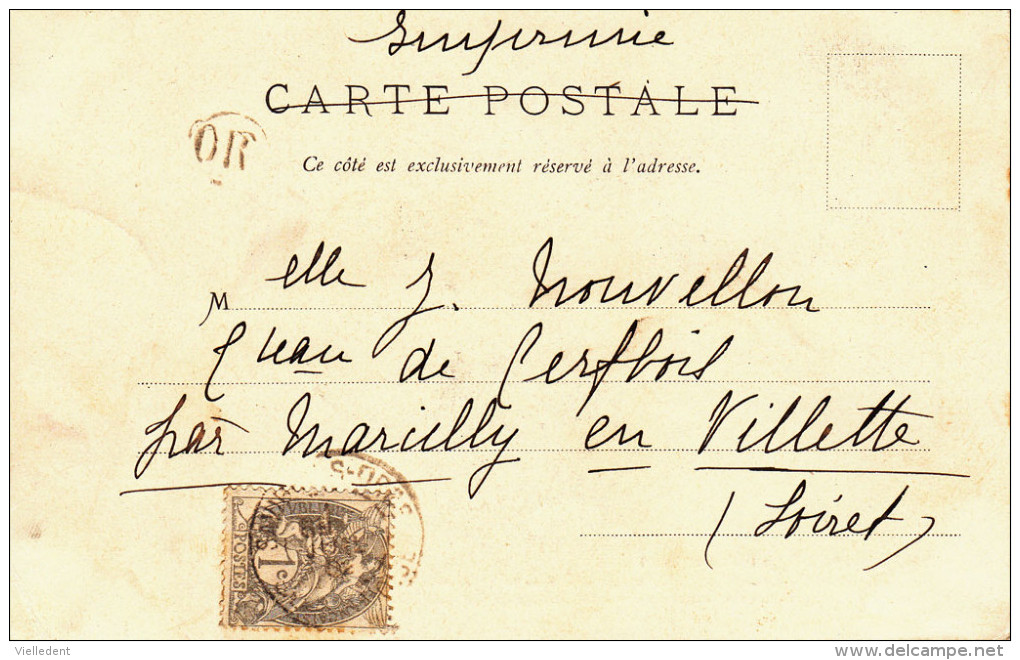 Imprimé
CARTE POSTALE
OR
Ce côté est exclusivement réservé à l'adresse.
M elle J. Nouvellon
Cheau de Cerfbois
par Marcilly en Villette
(Loiret)
POSTES
1c
Vielledent
delcampe.net